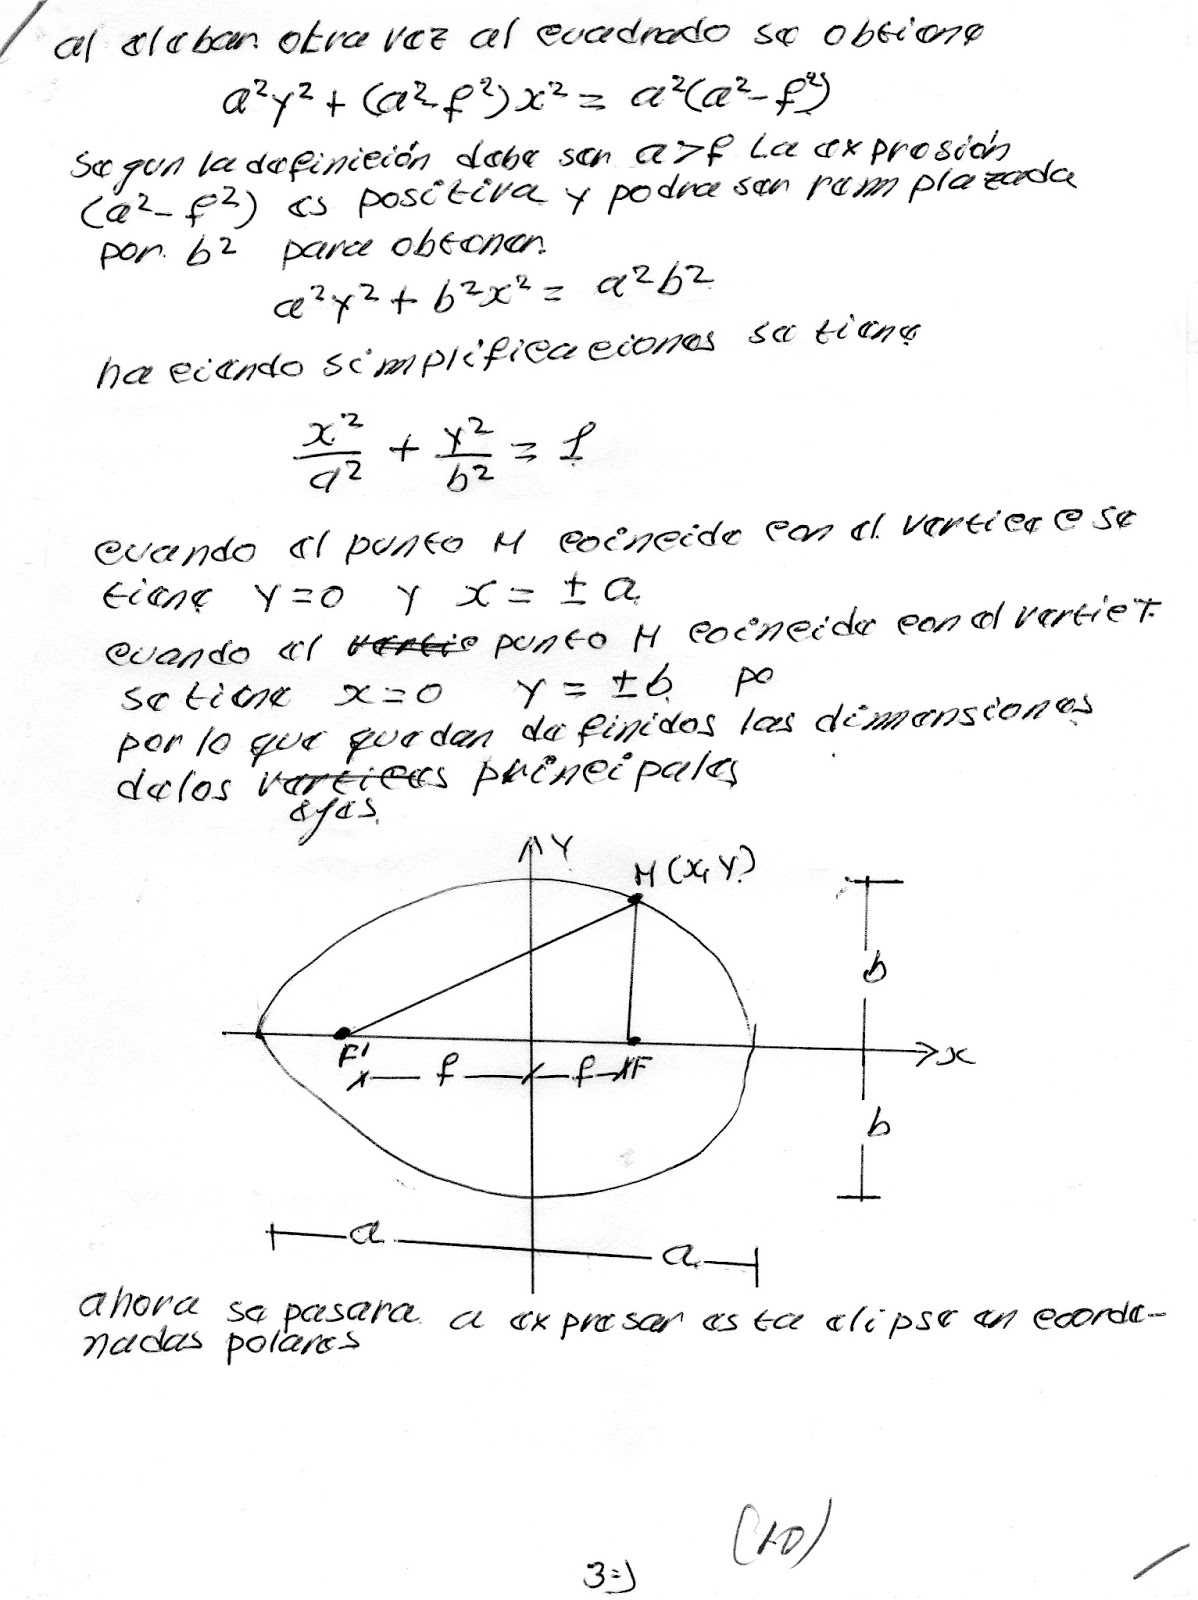 al elebar otra vez al cuadrado se obtiene
a²y² + (a²-f²)x² = a²(a²-f²)
Segun la definición debe ser a>f La expresión
(a²-f²) es positiva y podra ser remplazada
por b² para obtener
a²y² + b²x² = a²b²
haciendo simplificaciones se tiene
x²/a² + y²/b² = 1
cuando el punto M coincide con el vertice e se
tiene y=0 y x = ±a
cuando el vertic punto M coincide con el vertice T
se tiene x=0 y = ±b po
por lo que quedan definidos las dimensiones
de los vertices principales
ejes
Y
M(x,y)
b
F'
F
x
f
f
b
a
a
ahora se pasara a expresar esta elipse en coorde-
nadas polares
(10)
3=)